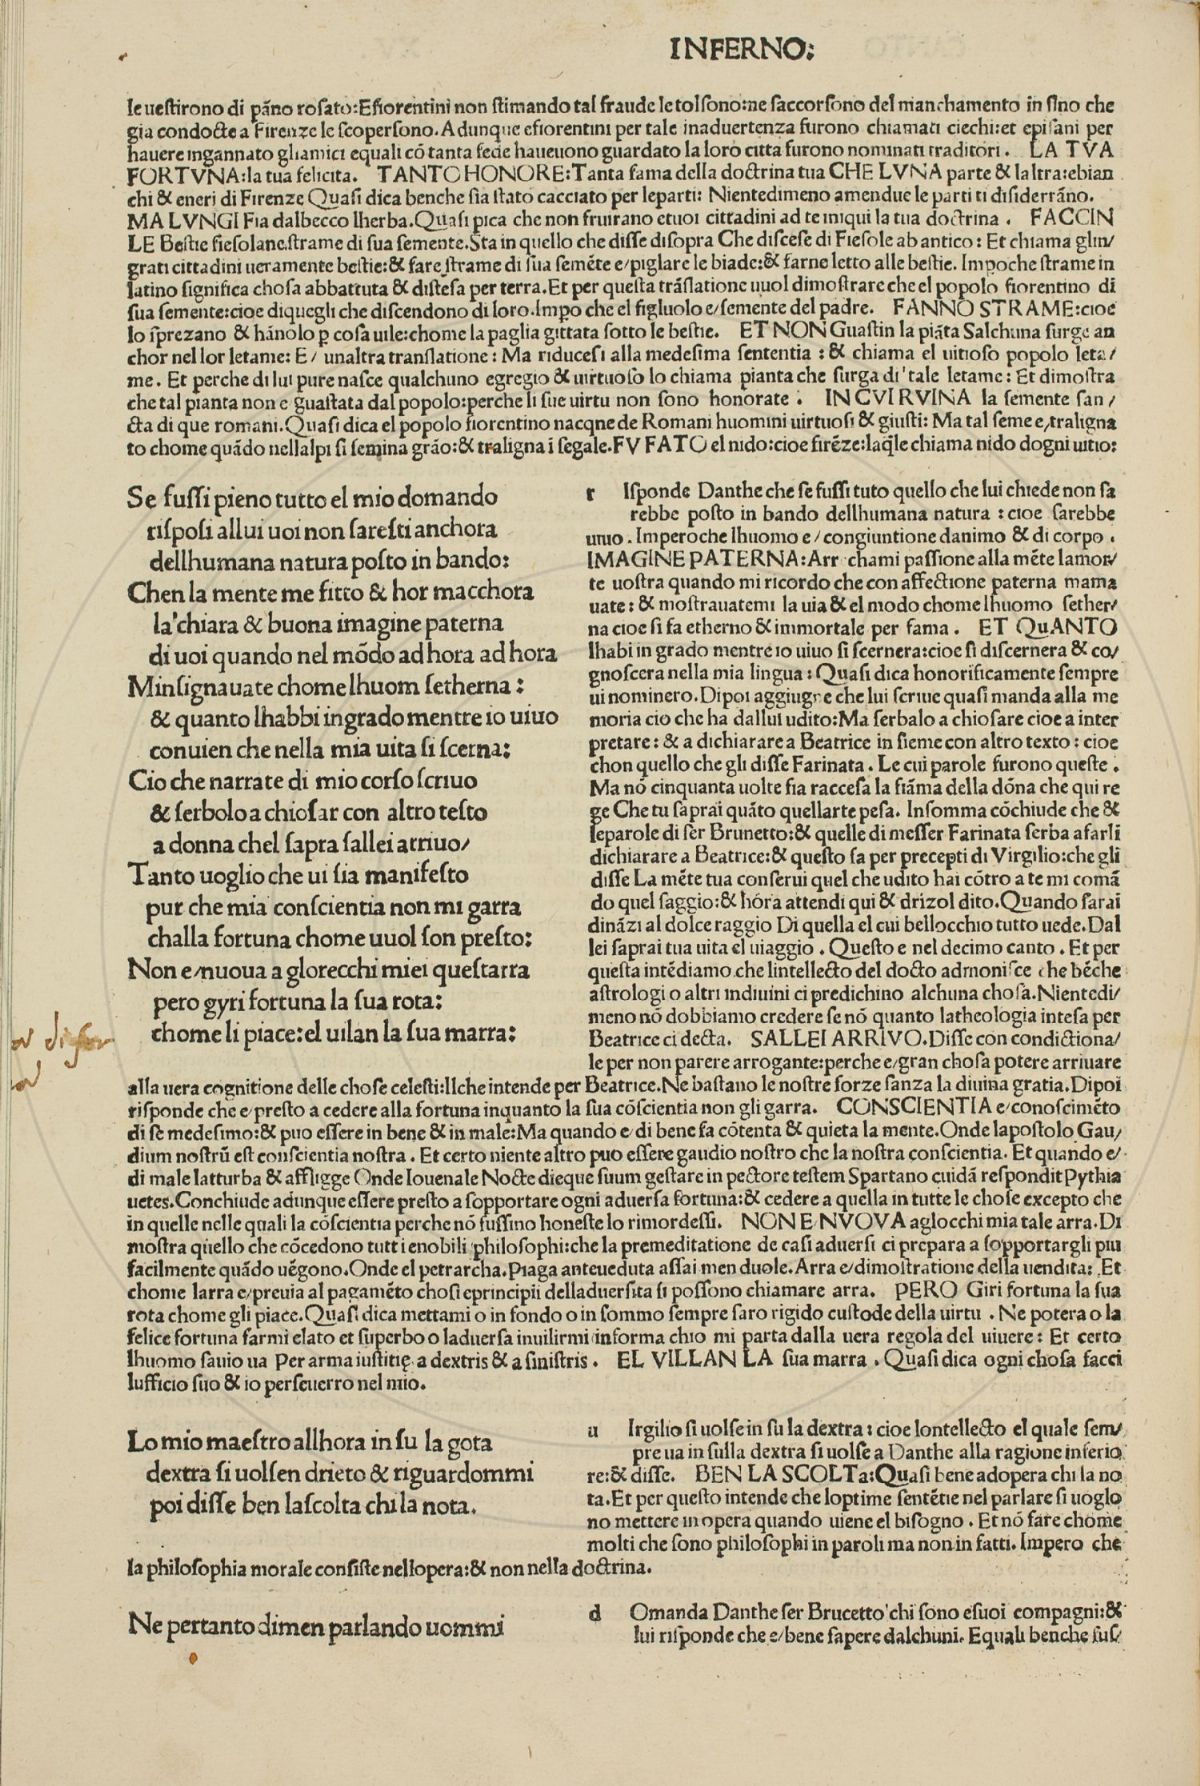 INFERNO:
le uestirono di pãno rosato:Efiorentini non stimando tal fraude le tolsono:ne saccorsono del manchamento in sino che
gia condocte a Firenze le scopersono.Adunque efiorentini per tale inaduertenza furono chiamati ciechi:et episani per
hauere ingannato gliamici equali cõ tanta fede haueuono guardato la loro citta furono nominati traditori. LA TVA
FORTVNA:la tua felicita. TANTO HONORE:Tanta fama della doctrina tua CHE LVNA parte & laltra:ebian
chi & eneri di Firenze Quasi dica benche sia stato cacciato per leparti: Nientedimeno amendue le parti ti disiderrãno.
MA LVNGI Fia dalbecco lherba.Quasi pica che non fruirano etuoi cittadini ad te iniqui la tua doctrina. FACCIN
LE Bestie fiesolane.strame di sua semente.Sta in quello che disse disopra Che discese di Fiesole ab antico: Et chiama glin/
grati cittadini ueramente bestie:& fare strame di sua semẽte e/piglare le biade:& farne letto alle bestie. Impoche strame in
latino significa chosa abbattuta & distesa per terra.Et per questa trãslatione uuol dimostrare che el popolo fiorentino di
sua semente:cioe diquegli che discendono di loro.Impo che el figluolo e/semente del padre. FANNO STRAME:cioe
lo sprezano & hãnolo p cosa uile:chome la paglia gittata sotto le bestie. ET NON Guastin la piãta Salchuna surge an
chor nel lor letame: E/ unaltra translatione: Ma riducesi alla medesima sententia: & chiama el uitioso popolo leta/
me. Et perche di lui pure nasce qualchuno egregio & uirtuoso lo chiama pianta che surga di tale letame: Et dimostra
che tal pianta non e guastata dal popolo:perche li sue uirtu non sono honorate. IN CVI RVINA la semente san/
cta di que romani.Quasi dica el popolo fiorentino nacqne de Romani huomini uirtuosi & giusti: Ma tal seme e/traligna
to chome quãdo nellalpi si semina grão:& traligna ĩ segale.FV FATO el nido:cioe firẽze:laq̃le chiama nido dogni uitio:
Se fussi pieno tutto el mio domando
risposi allui uoi non saresti anchora
dellhumana natura posto in bando:
Chen la mente me fitto & hor macchora
la chiara & buona imagine paterna
di uoi quando nel mõdo ad hora ad hora
Minsignauate chome lhuom setherna:
& quanto lhabbi in grado mentre io uiuo
conuien che nella mia uita si scerna:
Cio che narrate di mio corso scriuo
& serbolo a chiosar con altro testo
a donna chel sapra sallei arriuo/
Tanto uoglio che ui sia manifesto
pur che mia conscientia non mi garra
challa fortuna chome uuol son presto:
Non e/nuoua a glorecchi miei questarra
pero gyri fortuna la sua rota:
chome li piace:el uilan la sua marra:
r Isponde Danthe che se fussi tuto quello che lui chiede non sa
rebbe posto in bando dellhumana natura: cioe sarebbe
uiuo. Imperoche lhuomo e/congiuntione danimo & di corpo.
IMAGINE PATERNA:Arr chami passione alla mẽte lamor/
te uostra quando mi ricordo che con affectione paterna mama
uate: & mostrauatemi la uia & el modo chome lhuomo sether/
na cioe si fa etherno & immortale per fama. ET QuANTO
lhabi in grado mentre io uiuo si scernera:cioe si discernera & co/
gnoscera nella mia lingua: Quasi dica honorificamente sempre
ui nominero.Dipoi aggiugne che lui scriue quasi manda alla me
moria cio che ha dallui udito:Ma serbalo a chiosare cioe a inter
pretare: & a dichiarare a Beatrice in sieme con altro texto: cioe
chon quello che gli disse Farinata. Le cui parole furono queste.
Ma nõ cinquanta uolte fia raccesa la fiãma della dõna che qui re
ge Che tu saprai quãto quellarte pesa. Insomma cõchiude che &
leparole di ser Brunetto:& quelle di messer Farinata serba afarsi
dichiarare a Beatrice:& questo fa per precepti di Virgilio:che gli
disse La mẽte tua conserui quel che udito hai cõtro a te mi comã
do quel saggio:& hora attendi qui & drizol dito.Quando sarai
dinãzi al dolce raggio Di quella el cui bellocchio tutto uede.Dal
lei saprai tua uita el uiaggio. Questo e nel decimo canto. Et per
questa intẽdiamo che lintellecto del docto admonisce che bẽche
astrologi o altri indiuini ci predichino alchuna chosa.Nientedi/
meno nõ dobbiamo credere se nõ quanto latheologia intesa per
Beatrice ci decta. SALLEI ARRIVO.Disse con condictiona/
le per non parere arrogante:perche e/gran chosa potere arriuare
alla uera cognitione delle chose celesti:Ilche intende per Beatrice.Ne bastano le nostre forze sanza la diuina gratia.Dipoi
risponde che e/presto a cedere alla fortuna inquanto la sua cõscientia non gli garra. CONSCIENTIA e/conoscimẽto
di se medesimo:& puo essere in bene & in male:Ma quando e/di bene fa cõtenta & quieta la mente.Onde lapostolo Gau/
dium nostrũ est conscientia nostra. Et certo niente altro puo essere gaudio nostro che la nostra conscientia. Et quando e/
di male latturba & affligge Onde Iouenale Nocte dieque suum gestare in pectore testem Spartano cuidã respondit Pythia
uetes.Conchiude adunque essere presto a sopportare ogni aduersa fortuna:& cedere a quella in tutte le chose excepto che
in quelle nelle quali la cõscientia perche nõ fussino honeste lo rimordessi. NON E NVOVA aglocchi mia tale arra.Di
mostra quello che cõcedono tutti enobili philosophi:che la premeditatione de casi aduersi ci prepara a sopportargli piu
facilmente quãdo uẽgono.Onde el petrarcha.Piaga anteueduta assai men duole.Arra e/dimostratione della uendita: Et
chome larra e/preuia al pagamẽto chosi eprincipii delladuersita si possono chiamare arra. PERO Giri fortuna la sua
rota chome gli piace.Quasi dica mettami o in fondo o in sommo sempre saro rigido custode della uirtu. Ne potera o la
felice fortuna farmi elato et superbo o laduersa inuilirmi informa chio mi parta dalla uera regola del uiuere: Et certo
lhuomo sauio ua Per arma iustitię a dextris & a sinistris. EL VILLAN LA sua marra. Quasi dica ogni chosa facci
lufficio suo & io perseuerro nel mio.
Lo mio maestro allhora in su la gota
dextra si uolsen drieto & riguardommi
poi disse ben lascolta chi la nota.
u Irgilio si uolse in su la dextra: cioe lontellecto el quale sem/
pre ua in sulla dextra si uolse a Danthe alla ragione inferio
re:& disse. BEN LA SCOLTa:Quasi bene adopera chi la no
ta.Et per questo intende che loptime sentẽtie nel parlare si uoglo
no mettere in opera quando uiene el bisogno. Et nõ fare chome
molti che sono philosophi in paroli ma non in fatti. Impero che
la philosophia morale consiste nellopera:& non nella doctrina.
Ne pertanto dimen parlando uommi
d Omanda Danthe ser Brucetto chi sono esuoi compagni:&
lui risponde che e/bene sapere dalchuni. Equali benche fus/